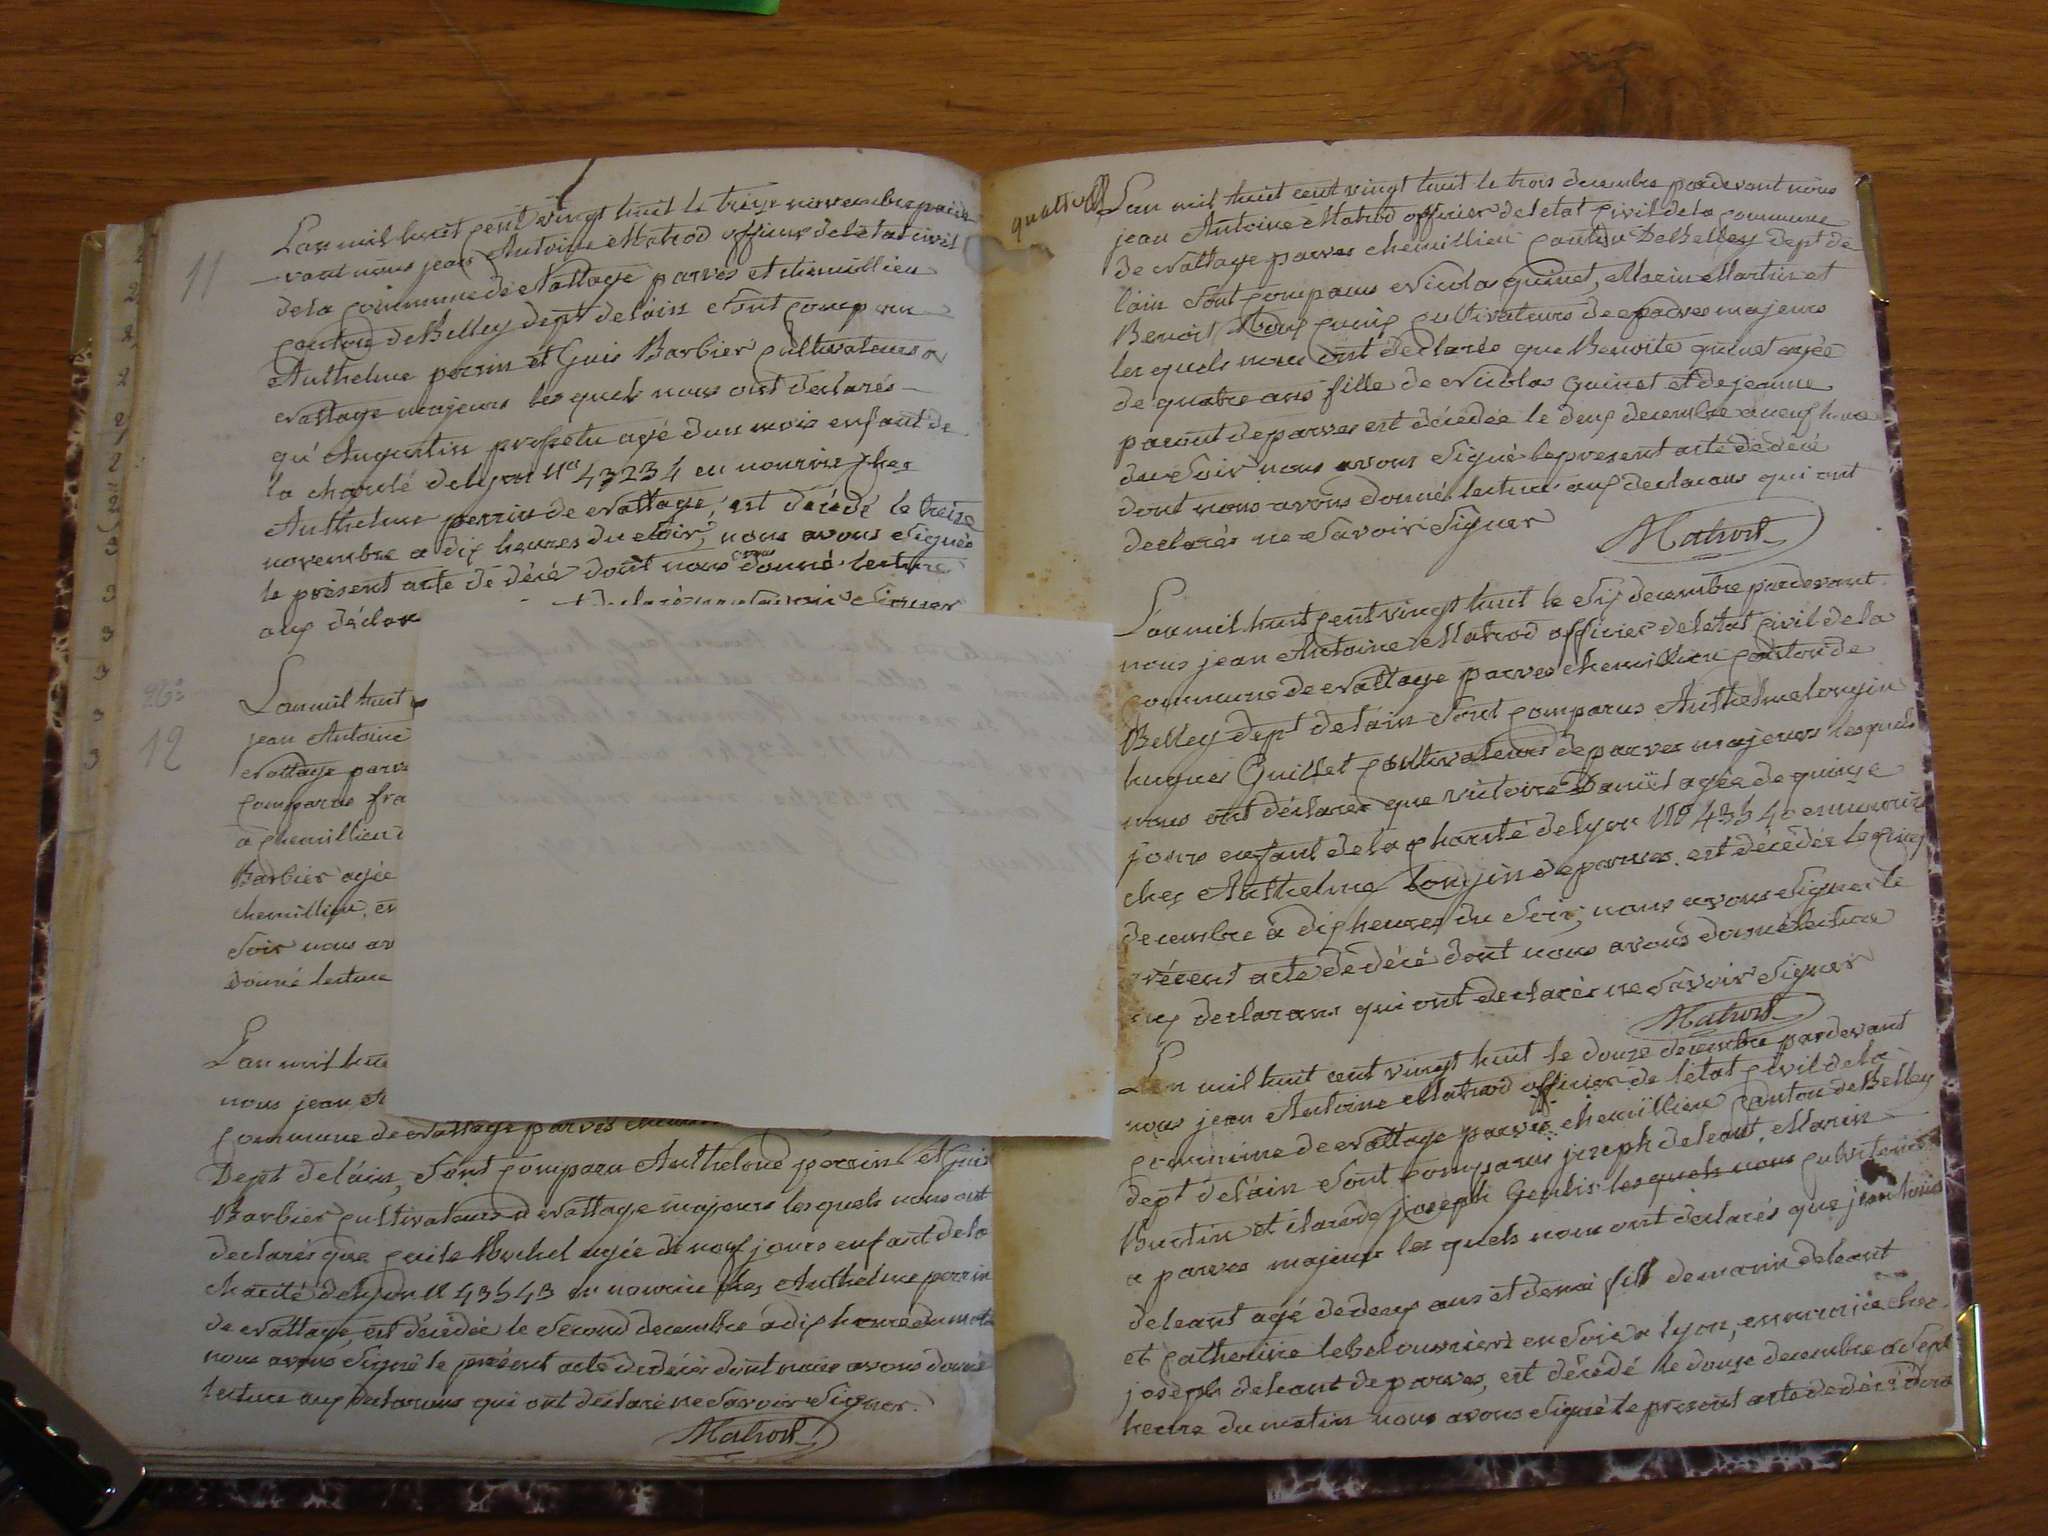 11
L'an mil huit cent vingt huit le treize novembre parde
vant nous jean Antoine Matrod officier de letat civil
de la commune de Nattage parves et chemillieu
canton de Belley dept de lain sont comparu
Anthelme perrin et Guis Barbier cultivateurs a
Nattage majeurs les quels nous ont declarés
qu' Augustin agé dun mois enfant de
la charité de lyon No 43234 en nourrise chez
Anthelme perrin de Nattage, est décédé le treize
novembre a dix heures du soir, nous avons Signés
le présent acte de décé dont nous avons donné lecture
aux déclar
26e
12
L'an mil huit
jean Antoine
Nattage parve
comparus fra
a chemillieu
Barbier agée
chemillieu, es
soir nous av
donné lecture
L'an mil hui
nous jean A
commune de Nattage parves chemi
Dept de láin, Sont comparu Anthelme perrin et Guis
Barbier cultivateurs a Nattage majeurs les quels nous ont
declarés que Michel agée de neuf jours enfant de la
charité de lyon No 43543 en nourrice chez Anthelme perrin
de Nattage, est décédée le Second decembre a dix heure du mat
nous avons Signé le présent acte de décés dont nous avons donné
lecture aux declarans qui ont declaré ne Savoir Signer.
Matrod
L'an mil huit cent vingt huit le trois decembre pardevant nous
jean Antoine Matrod officier de letat civil de la commune
de Nattage parves chemillieu canton De Belley dept de
lain Sont comparus Nicolas quinet, Marin Martin et
Benoit cultivateurs de parves majeurs
les quels nous ont declarés que Benoite quinet agée
de quatre ans fille de Nicolas Guinet et de jeanne
de parves est décédée le deux decembre a neuf heure
du Soir nous avons Signé le present acte de décé
dont nous avons donné lecture aux declarans qui ont
declarés ne Savoir Signer
Matrod
L'an mil huit cent vingt huit le Six decembre pardevant
nous jean Antoine Matrod officier de letat civil de la
commune de Nattage parves chemillieu canton de
Belley dept de lain Sont comparus Anthelme longin
hugues Guillet cultivateurs de parves majeurs les quels
nous ont déclarer que victoire Daniel agée de quinze
jours enfant de la charité de lyon No 43540 en nourise
chez Anthelme longin de parves. est décédée le cinq
decembre à dix heures du Soir, nous avons Signer le
présent acte de décé dont nous avons donné lecture
aux declarans qui ont declarés ne Savoir Signer
Matrod
L'an mil huit cent vingt huit le douze decembre pardevant
nous jean Antoine Matrod officier de létat civil de la
commune de Nattage parves chemillieu canton de Belley
dept de láin Sont comparus joseph deleant, Marin
Burtin et joseph Genlis les quels nous cultivateurs
a parves majeurs les quels nous ont déclarés que jean
deleant agé de deux ans et demi fils de marin deleant
et catherine lebel ouvriers en Soie a lyon, en nourrice chez
joseph deleant de parves, est décédé le douze decembre a Sept
heure du matin nous avons Signé le present acte de décés dont